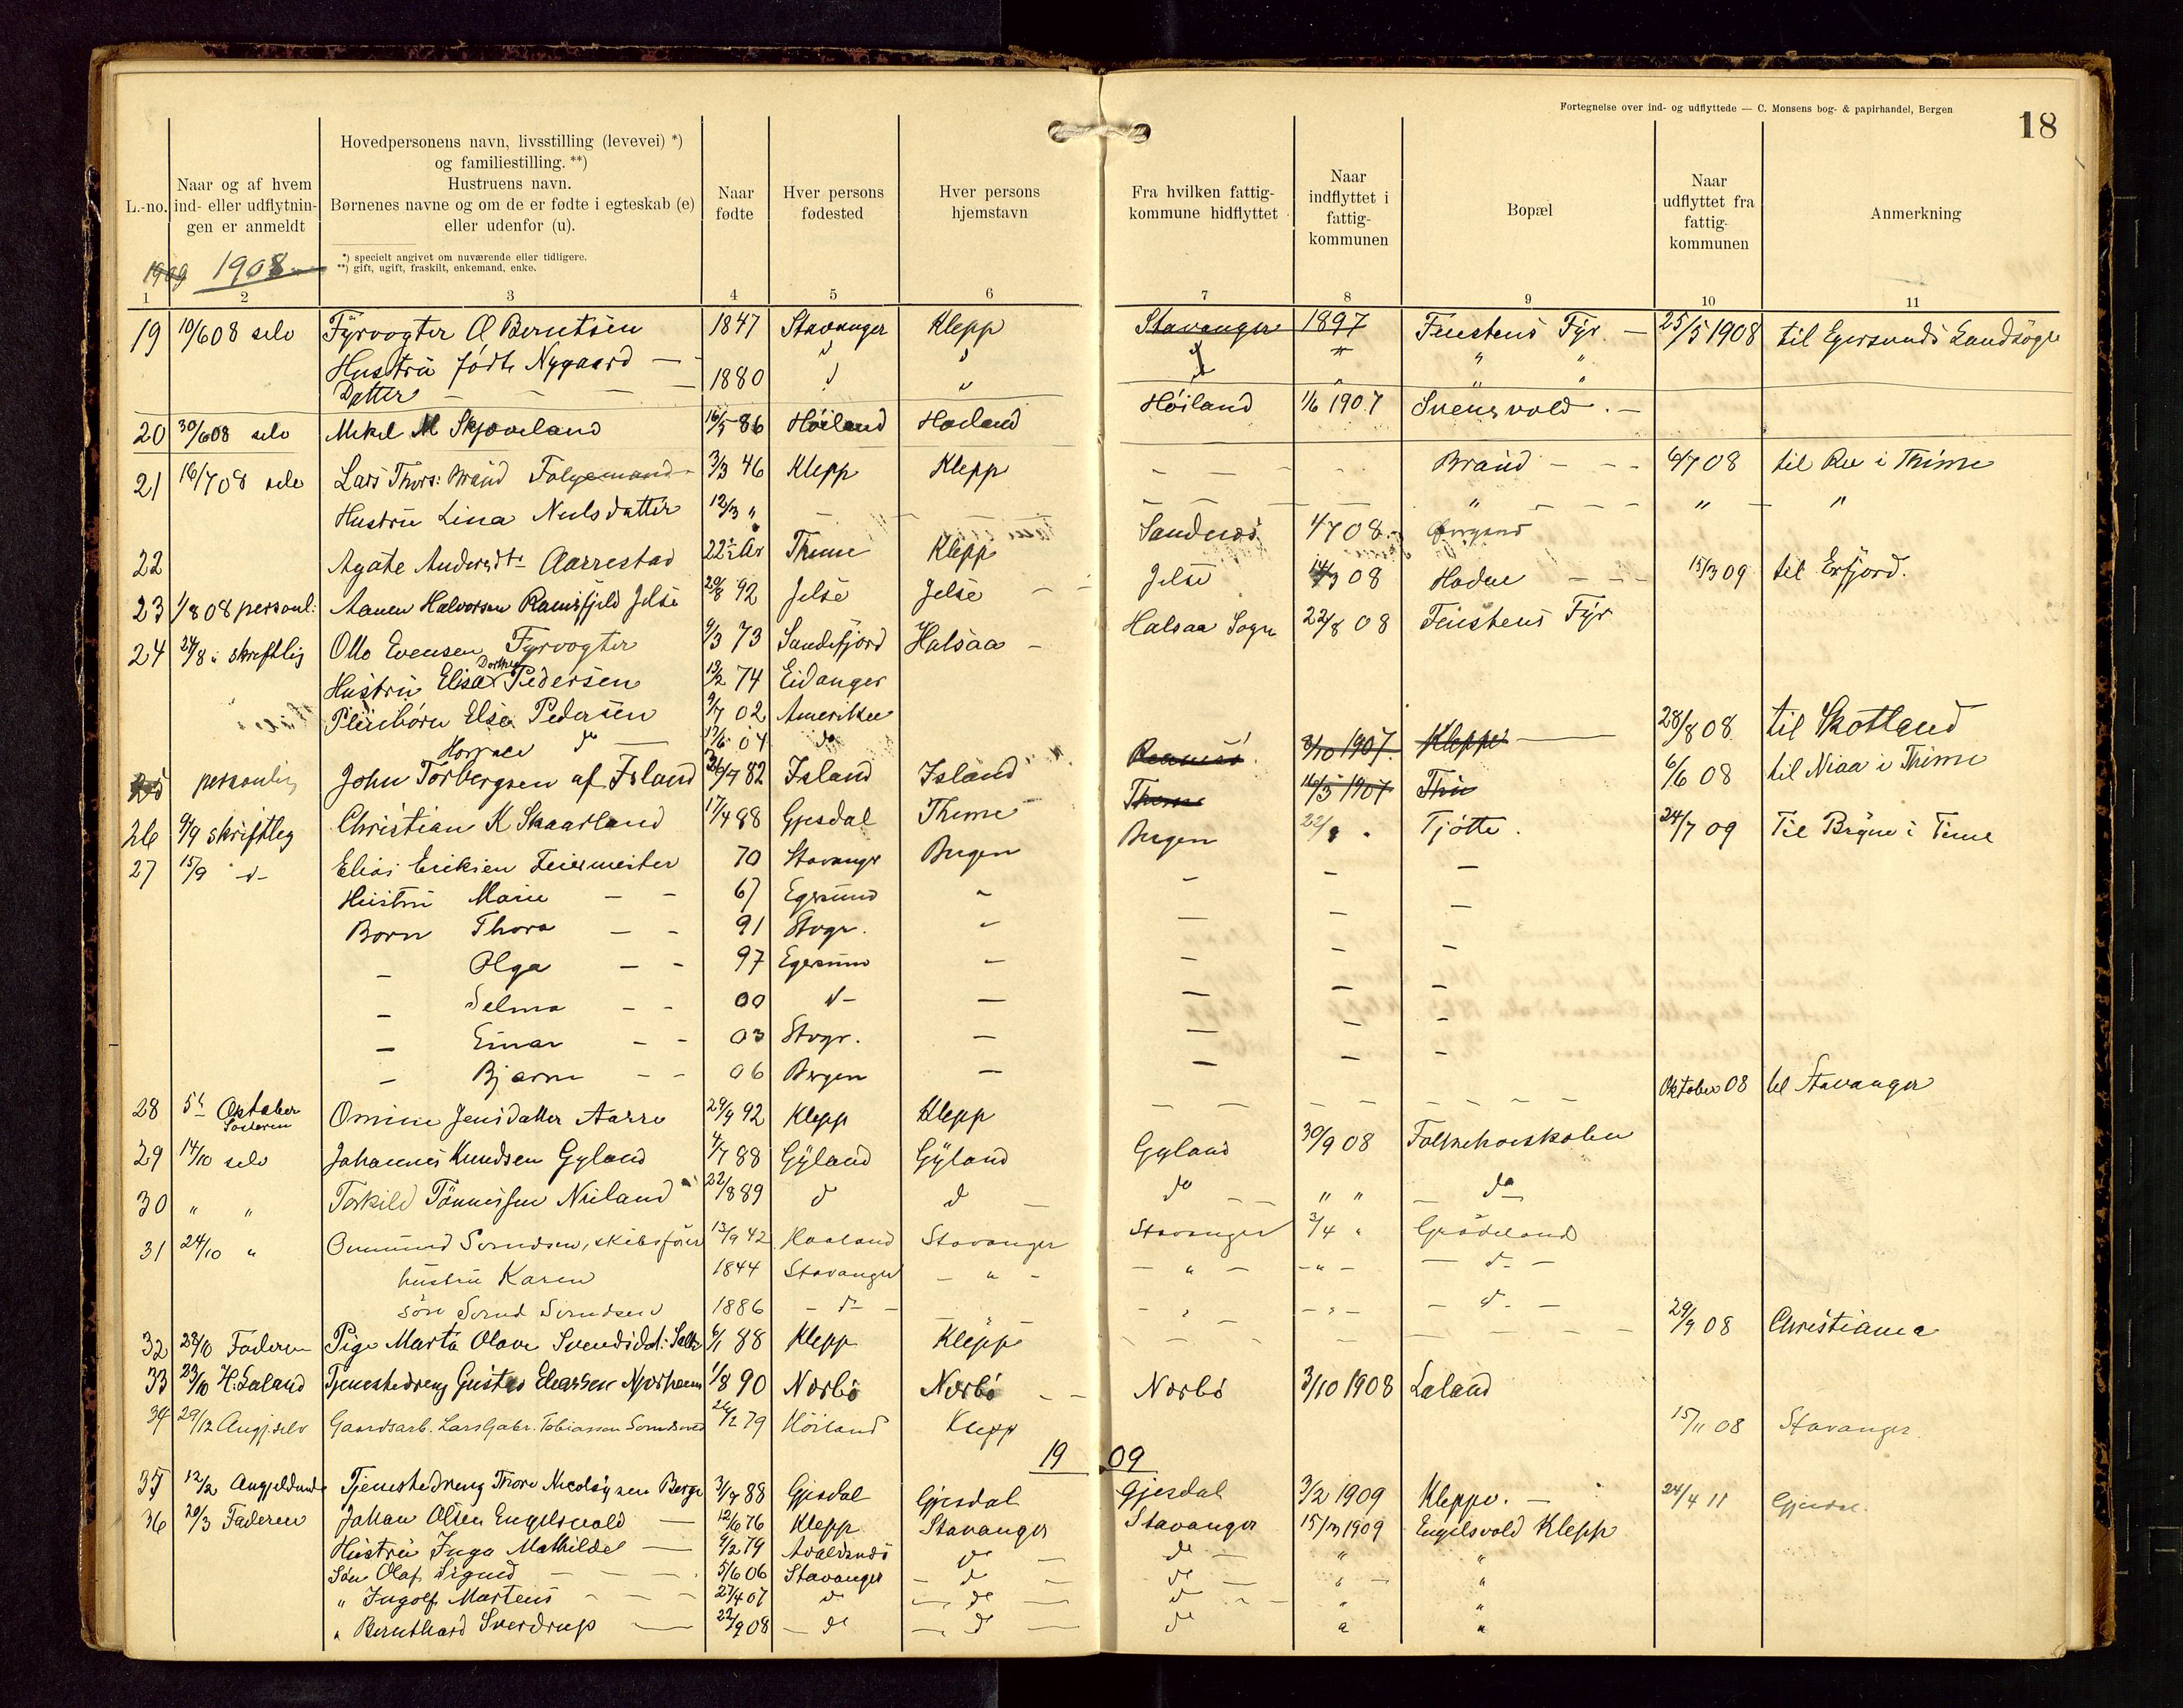 Fortegnelse over ind- og udflyttede — C. Monsens bog- & papirhandel, Bergen
18
L.-no.
Naar og af hvem ind- eller udflytnin- gen er anmeldt
Hovedpersonens navn, livsstilling (levevei) *) og familiestilling. **) Hustruens navn. Børnenes navne og om de er fødte i egteskab (e) eller udenfor (u).
*) specielt angivet om nuværende eller tidligere.
**) gift, ugift, fraskilt, enkemand, enke.
Naar fødte
Hver persons fødested
Hver persons hjemstavn
Fra hvilken fattig- kommune hidflyttet
Naar indflyttet i fattig- kommunen
Bopæl
Naar udflyttet fra fattig- kommunen
Anmerkning
1909 1908
1 2 3 4 5 6 7 8 9 10 11
19 10/6 08 selv Fyrvogter O Berntsen 1847 Stavanger Klepp Stavanger 1897 Feistens Fyr — 25/5 1908 til Egersunds Landsogn
Hustru fødte Nygaard — " "
Datter — 1880 " "
20 30/6 08 selv Mikel M Skjæveland 16/5 86 Höiland Høiland Höiland 1/6 1907 Svensvold
21 16/7 08 selv Lars Thors: Braud Folgemand 3/3 46 Klepp Klepp — Braud — 6/7 08 til Ree i Thime
Hustru Lina Neilsdatter 12/3 " — " — " — "
22 Agate Andersdtr Aarrestad 22½ Ar Thime Klepp Sandnes 4/7 08
23 1/8 08 personl: Aanen Halvorsen Ramsfjeld Jelse 29/8 92 Jelse Jelse — Jelse 14/3 08 Hodne — 15/3 09 til Erfjord.
24 24/8 " skriftlig Otto Evensen Fyrvogter 9/3 73 Sandefjord Halsaa — Halsaa Sogn 22/8 08 Feistens Fyr
Hustru Elisa Dorthea Pedersen 12/2 74 Eidanger
Pleiebörn Else Pedersen 9/7 02 Amerika
Horrace do — 17/6 04 do
25 personlig John Torbergsen af Island 26/7 82 Island Island 8/10 1907 Kleppe — 28/8 08 til Skotland
26 9/9 skriftleg Christian K Skaarland 17/4 88 Gjesdal Thime Thime 16/5 1907 Thu 6/6 08 til Niaa i Thime
27 15/9 -d- Elias Eriksen Feiermester 70 Stavanger Bergen Bergen 22/8 " Tjötte. 24/7 09 Til Bryne i Time
Hustru Marie — 67 Egersund " — — —
Børn Thora — 91 Stvgr. " — — —
— Olga — 97 Egersund — — — —
— Selma — 00 d- — — — —
— Einar — 03 Stvgr. — — — —
— Bjarne — 06 Bergen — — — —
28 5t Oktober Faderen Omine Jensdatter Aarre 29/9 92 Klepp Klepp — Oktober 08 til Stavanger
29 14/10 selv Johannes Knudsen Gyland 4/7 88 Gyland Gyland Gyland 30/9 08 Folkehøiskolen
30 " " Torkild Tönnessen Nuland 22/8 89 d d — do — " " — do
31 24/10 " Ommund Svendsen, skibsfører 13/9 42 Haaland Stavanger Stavanger 3/4 " Grödeland
hustru Karen 1844 Stavanger — " — — " — — " — — d- —
søn Svend Svendsen 1886 — d- — — " — " — — d- —
32 28/10 Faderen Pige Marta Olava Svendsdat: Salte 6/1 88 Klepp Kleppe — 29/9 08 Christiania
33 23/10 H. Laland Tjenestedreng Gustav Eliassen Njærheim 1/8 90 Nærbö Nærbö — Nærbö 3/10 1908 Laland
34 29/12 Angj. selv Gaardsarb. Lars Gabr. Tobiassen 24/2 79 Höiland Klepp 15/11 08 Stavanger.
19 09
35 12/2 Angjeldende Tjenestedreng Thore Nicolaysen Berge 3/7 88 Gjesdal Gjesdal Gjesdal 3/2 1909 Kleppe. — 24/4 11 Gjesdal.
36 20/3 Faderen Johan Olsen Engelsvold — 12/6 76 Klepp Stavanger Stavanger 15/3 1909 Engelsvold Klepp
Hustru Inga Mathilde — 9/2 79 Avaldsnes do — do — " "
Søn Olaf Sigurd — 5/6 06 Stavanger — do — do — " — "
" Ingolf Martens — 27/4 07 do — do — do — " "
" Bernthard Sverdrup — 22/9 08 — do — do — do " "